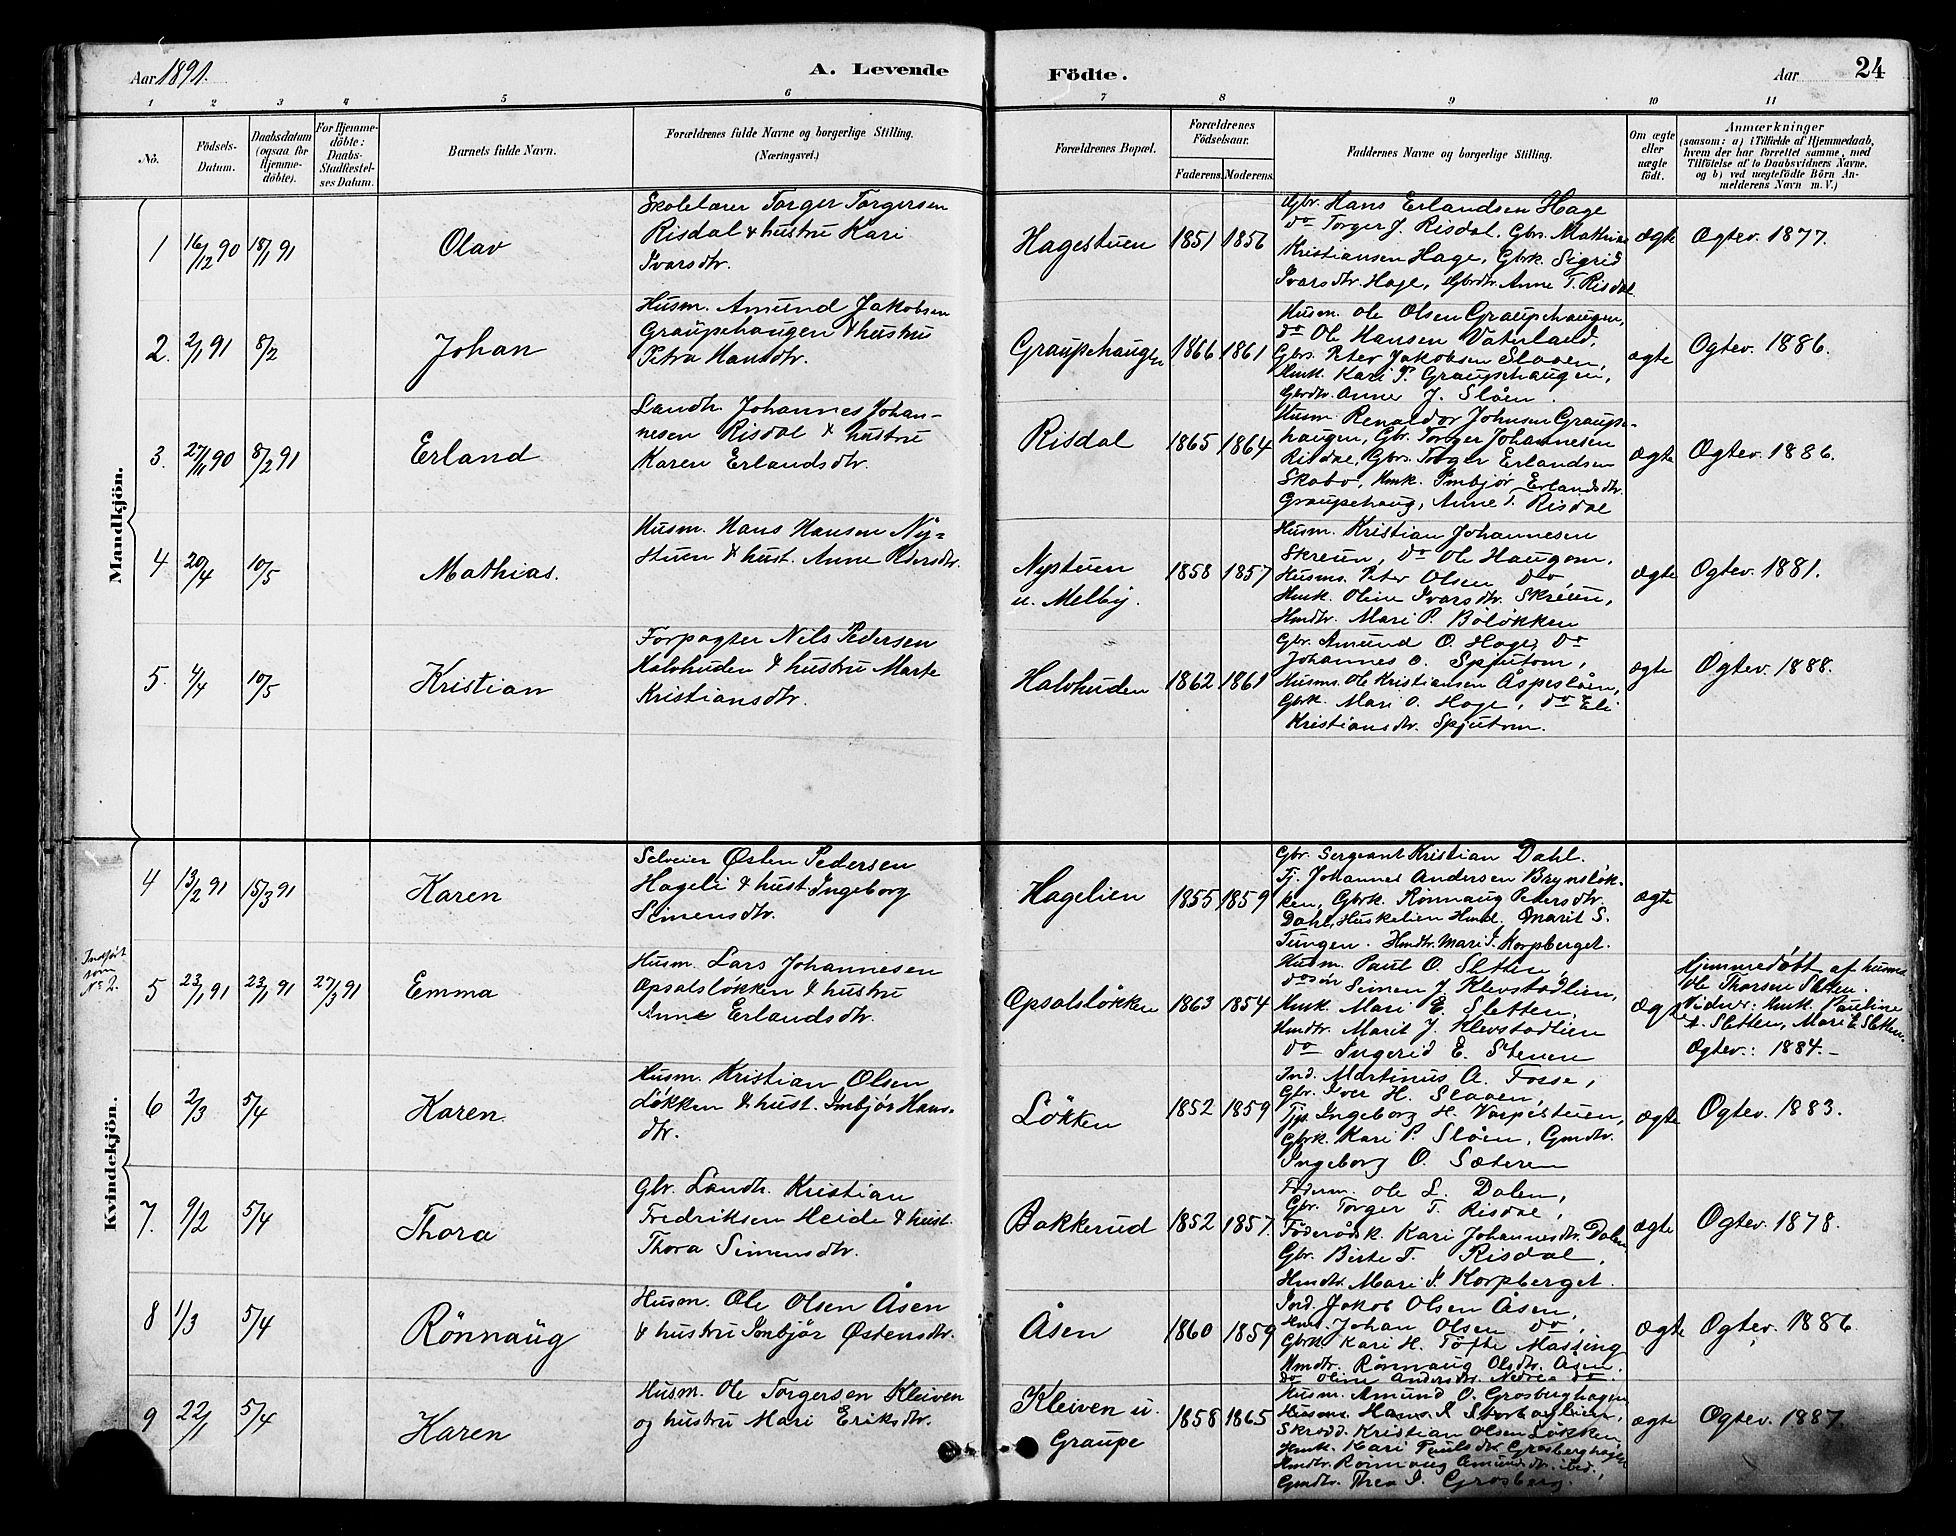 Aar 1891.
A. Levende
Födte.
Aar
24
1
2
3
4
5
6
7
8
9
10
11
No.
Födsels-
Datum.
Daabsdatum
(ogsaa for
Hjemme-
döbte).
For Hjemme-
döbte:
Daabs-
Stadfæstel-
ses Datum.
Barnets fulde Navn.
Forældrenes fulde Navne og borgerlige Stilling.
(Næringsvei.)
Forældrenes Bopæl.
Forældrenes
Födselsaar.
Faderens.
Moderens.
Faddernes Navne og borgerlige Stilling.
Om ægte
eller
uægte
födt.
Anmærkninger
(saasom: a) i Tilfælde af Hjemmedaab,
hvem der har forrettet samme, med
Tilföielse af to Daabsvidners Navne.
og b) ved uægtefödte Börn An-
melderens Navn m. V.)
Mandkjön.
1
16/12 90
18/1 91
Olav
Skolelærer Torger Torgersen
Risdal & hustru Kari
Ivarsdtr.
Hagestuen
1851
1856
Gbr. Hans Erlandsen Hage
do Torger J. Risdal, Gbrs. Mathias
Kristiansen Hage, Gbrk. Sigrid
Ivarsdtr. Hage, Gbrdtr. Anne T. Risdal
ægte
Ægtev. 1877.
2.
2/1 91
8/2
Johan
Husm. Amund Jakobsen
Graupehaugen & hustru
Petra Hansdtr.
Graupehaugen
1866
1861
Husm. Ole Olsen Graupehaugen,
do Ole Hansen Vaterland,
Gbrs. Peter Jakobsen Slaaen,
Hmk. Kari P. Graupehaugen,
Gbrdtr. Anne J. Slåen.
ægte
Ægtev. 1886.
3.
27/11 90
8/2 91
Erland
Landh. Johannes Johan-
nesen Risdal & hustru
Karen Erlandsdtr.
Risdal
1865
1864
Husm. Renaldor Johnsen Graupe-
haugen, Gbr. Torger Johannesen
Risdal, Gbrs. Torger Erlandsen
Skabo, Hmk. Imbjør Erlandsdtr.
Graupehaug, Anne T. Risdal
ægte
Ægtev. 1886.
4
20/4
10/5
Mathias.
Husm. Hans Hansen Ny-
stuen & hust. Anne Pedersdtr.
Nystuen
u. Melby.
1858
1857
Husm. Kristian Johannesen
Skreun, do Ole Haugom,
Husms. Peter Olsen do,
Hmk. Oline Ivarsdtr. Skreun,
Hmdtr. Mari P. Böløkken
ægte
Ægtev. 1881.
5.
4/4
10/5
Kristian
Forpagter Nils Pedersen
Halvhuden & hustru Marte
Kristiansdtr.
Halvhuden
1862
1861
Gbr. Amund O. Hage, do
Johannes O. Spjutom,
Husms. Ole Kristiansen Åspeslåen,
Gbrk. Mari O. Hage, do Eli
Kristiansdtr. Spjutom.
ægte
Ægtev. 1888.
Kvindekjön.
4
13/2 91
15/3 91
Karen
Selveier Østen Pedersen
Hageli & hust. Ingeborg
Simensdtr.
Hagelien
1855
1859
Gbr. Sergeant Kristian Dahl.
Tj. Johannes Andersen Brynsløk-
ken, Gbrk. Rønnaug Pedersdtr.
Dahl, Huskelien Hmk. Marit S.
Tungen. Hmdtr. Mari S. Korpberget.
ægte
Indført
som
No 2.
5
23/1 91
23/1 91
27/3 91
Emma
Husm. Lars Johannesen
Opsalsløkken & hustru
Anne Erlandsdtr.
Opsalsløkken
1863
1854
Husm. Paul O. Sletten,
do søn Simen J. Klevstadlien,
Hmk. Mari E. Sletten,
Hmdtr. Marit J. Klevstadlien
do Ingerid E. Stenen
ægte
Hjemmedøbt af husm.
Ole Thorsen Sletten.
Vidner: Hmk. Pauline
A. Sletten, Mari E. Sletten.
Ægtev.: 1884.
6
2/3
5/4
Karen.
Husm. Kristian Olsen
Løkken & hust. Imbjør Hans-
dtr.
Løkken
1852
1859
Ind. Martinus A. Fosse,
Gbr. Iver H. Slaaen,
Tjp. Ingeborg H. Varpestuen,
Gbrk. Kari P. Slåen, Gmdtr.
Ingeborg O. Sæteren
ægte
Ægtev. 1883.
7.
9/2
5/4
Thora
Gbr. Landh. Kristian
Fredriksen Heide & hust.
Thora Simensdtr.
Bakkerud
1852
1857.
Föderm. Ole L. Dalen,
Gbr. Torger T. Risdal,
Föderådk. Kari Johannesdtr. Dalen
Gbr. Birte T. Risdal,
Hmdtr. Mari S. Korpberget.
ægte
Ægtev. 1878.
8
1/3
5/4
Rönnaug
Husm. Ole Olsen Åsen
& hustru Imbjør Østensdtr.
Åsen
1860
1859
Ind. Jakob Olsen Åsen,
Hms. Johan Olsen do,
Gbrk. Kari H. Tofte Massing
Hmdtr. Rønnaug Olsdtr. Åsen.
do Oline Andersdtr. Nedrea do.
ægte
Ægtev. 1886.
9
22/1
5/4
Karen
Husm. Ole Torgersen Kleiven
og hustru Mari Eriksdtr.
Kleiven u.
Graupe
1858
1865
Husm. Amund O. Grosberghagen
Husms. Hans
Skrædd. Kristian Olsen Løkken
Hmk. Kari Paulsdtr. Grosberghagen
Hmdtr. Rønnaug Amundsdtr. ibid.,
Gmdtr. Thea I. Grosberg.
ægte
Ægtev. 1887.